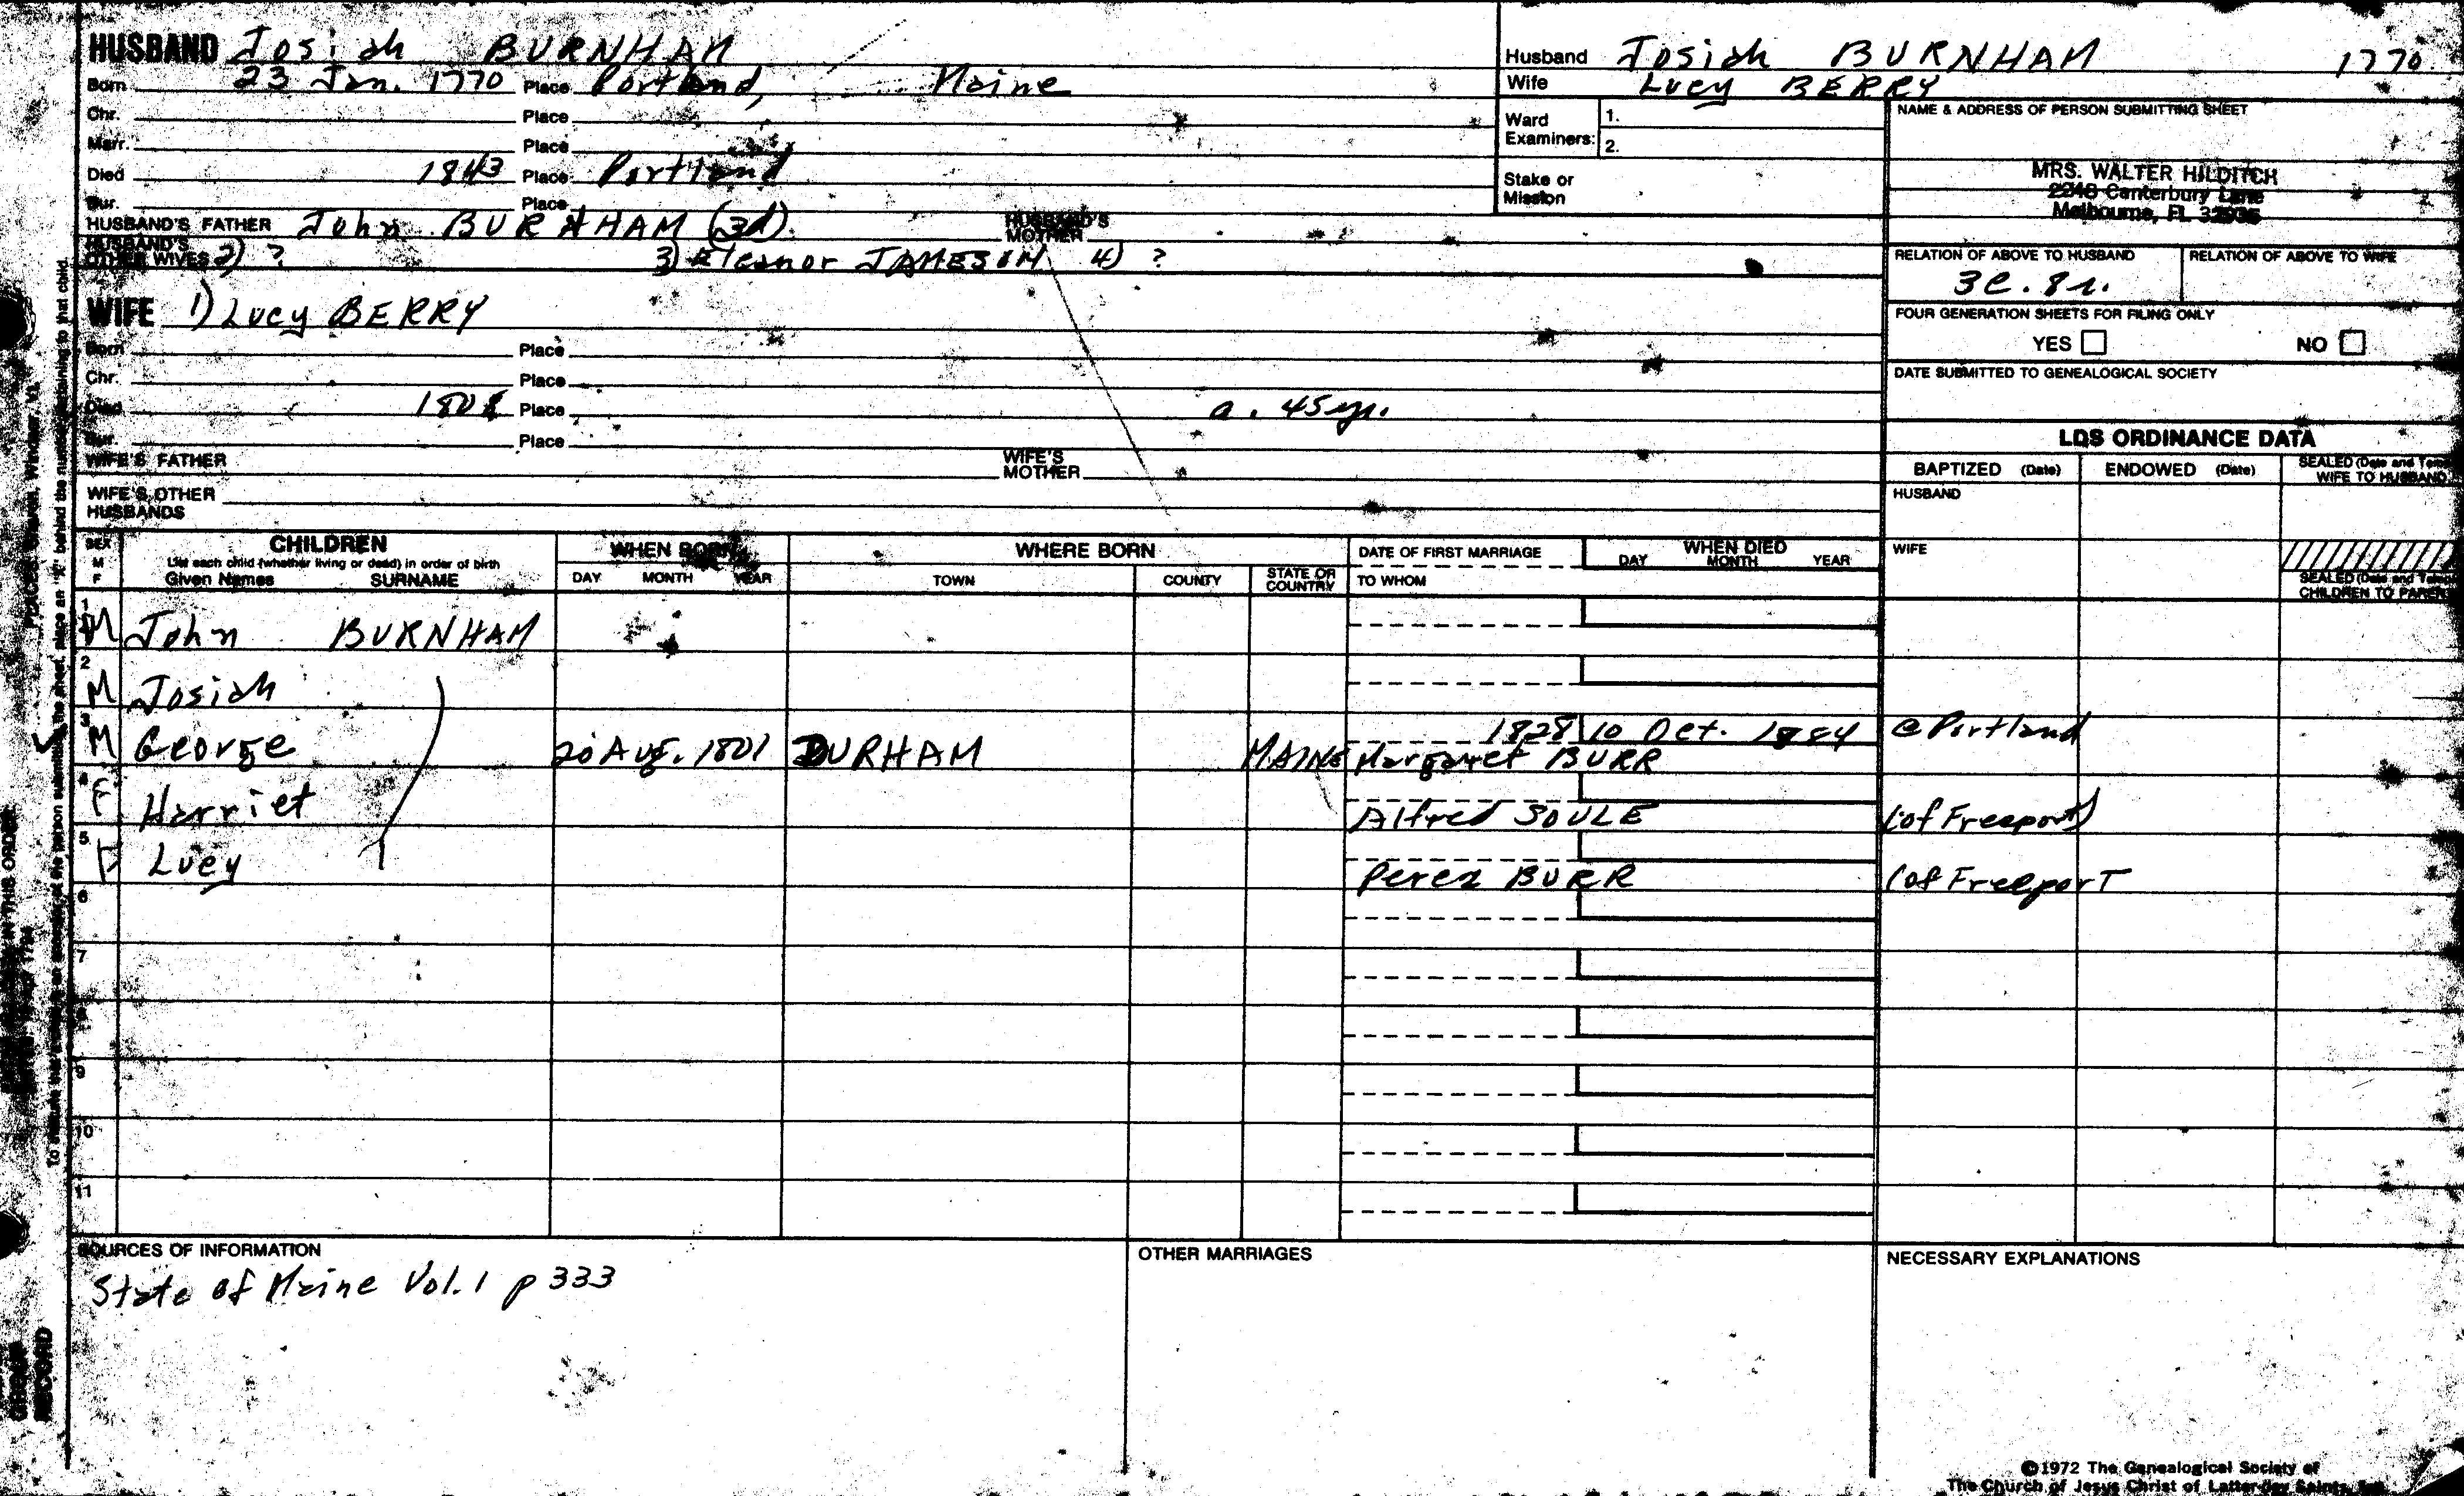 HUSBAND Josiah BURNHAM
Born 23 Jan. 1770 Place Portland, Maine
Chr. Place
Marr. Place
Died 1843 Place Portland
Bur. Place
HUSBAND'S FATHER John BURNHAM (3d). HUSBAND'S MOTHER
HUSBAND'S OTHER WIVES 2) ? 3) Eleanor JAMESON 4) ?
WIFE 1) Lucy BERRY
Born Place
Chr. Place
Died Place a. 45 yr.
Bur. Place
WIFE'S FATHER WIFE'S MOTHER
WIFE'S OTHER HUSBANDS
Husband Josiah BURNHAM 1770
Wife Lucy BERRY
Ward Examiners: 1.
2.
Stake or Mission
NAME & ADDRESS OF PERSON SUBMITTING SHEET
MRS. WALTER HILDITCH
Canterbury Lane
Melbourne, FL
RELATION OF ABOVE TO HUSBAND RELATION OF ABOVE TO WIFE
3C. 8r.
FOUR GENERATION SHEETS FOR FILING ONLY
YES NO
DATE SUBMITTED TO GENEALOGICAL SOCIETY
LDS ORDINANCE DATA
BAPTIZED (Date) ENDOWED (Date) SEALED (Date and Temple) WIFE TO HUSBAND
HUSBAND
WIFE
SEALED (Date and Temple) CHILDREN TO PARENTS
SEX M F CHILDREN WHEN BORN WHERE BORN DATE OF FIRST MARRIAGE WHEN DIED
List each child (whether living or dead) in order of birth
Given Names SURNAME DAY MONTH YEAR TOWN COUNTY STATE OR COUNTRY TO WHOM DAY MONTH YEAR
1 M John BURNHAM
2 M Josiah
3 M George 20 Aug. 1801 DURHAM MAINE 1828 10 Oct. 1884 @ Portland
Margaret BURR
4 F Harriet Alfred SOULE (of Freeport)
5 F Lucy Perez BURR (of Freeport
6
7
8
9
10
11
SOURCES OF INFORMATION OTHER MARRIAGES NECESSARY EXPLANATIONS
State of Maine Vol. 1 p 333
©1972 The Genealogical Society of
The Church of Jesus Christ of Latter-day Saints, Inc.
IN THIS ORDER
RECORD